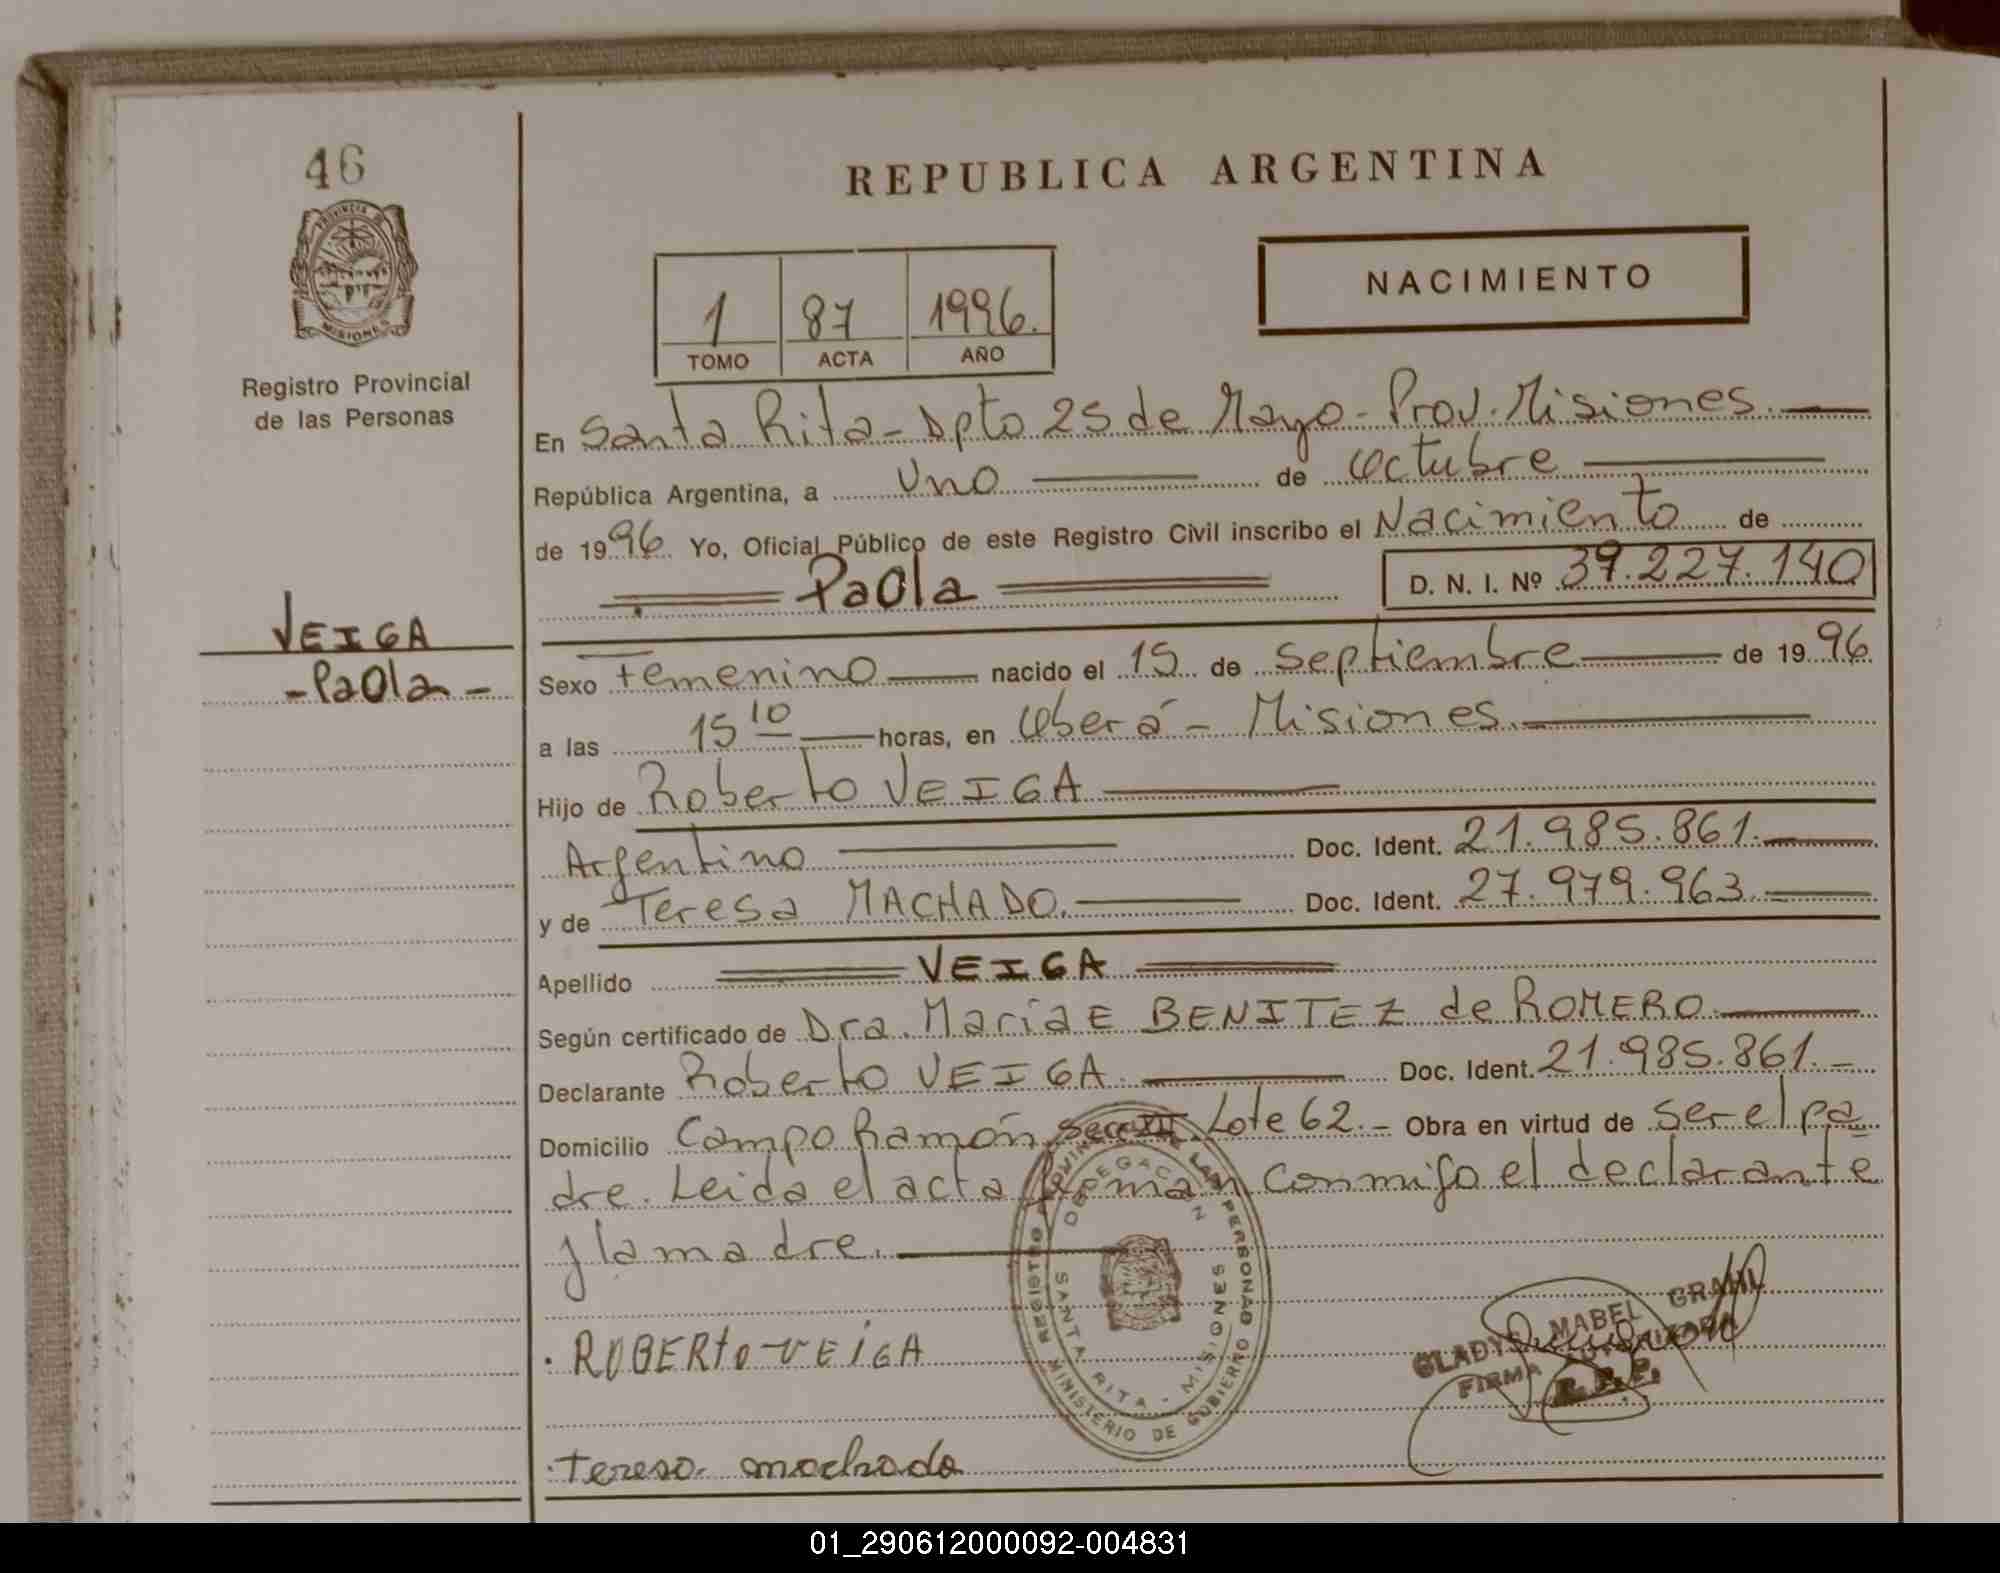 46
REPUBLICA ARGENTINA
PROVINCIA DE
MISIONES
NACIMIENTO
1 87 1996.
TOMO ACTA AÑO
Registro Provincial
de las Personas
En Santa Rita - Dpto 25 de Mayo - Prov. Misiones.
República Argentina, a uno de octubre
de 1996. Yo, Oficial Público de este Registro Civil inscribo el Nacimiento de
Paola D. N. I. Nº 39.227.140
VEIGA
- Paola -
Sexo Femenino nacido el 15 de Septiembre de 1996
a las 15 10 horas, en Oberá - Misiones.
Hijo de Roberto VEIGA
Argentino Doc. Ident. 21.985.861.
y de Teresa MACHADO. Doc. Ident. 27.979.963.
Apellido VEIGA
Según certificado de Dra. Maria E BENITEZ de ROMERO
Declarante Roberto VEIGA. Doc. Ident. 21.985.861. -
Domicilio Campo Ramón Secc XII Lote 62. - Obra en virtud de ser el pa
dre. Leida el acta firman conmigo el declarante
y la madre.
REGISTRO PROVINCIAL DE LAS PERSONAS MINISTERIO DE GOBIERNO
DELEGACION SANTA RITA - MISIONES
GLADYS MABEL GRAHL
FIRMA AUTORIZADA
R. P. P.
. ROBERTO - VEIGA
. teresa machado
01_290612000092-004831